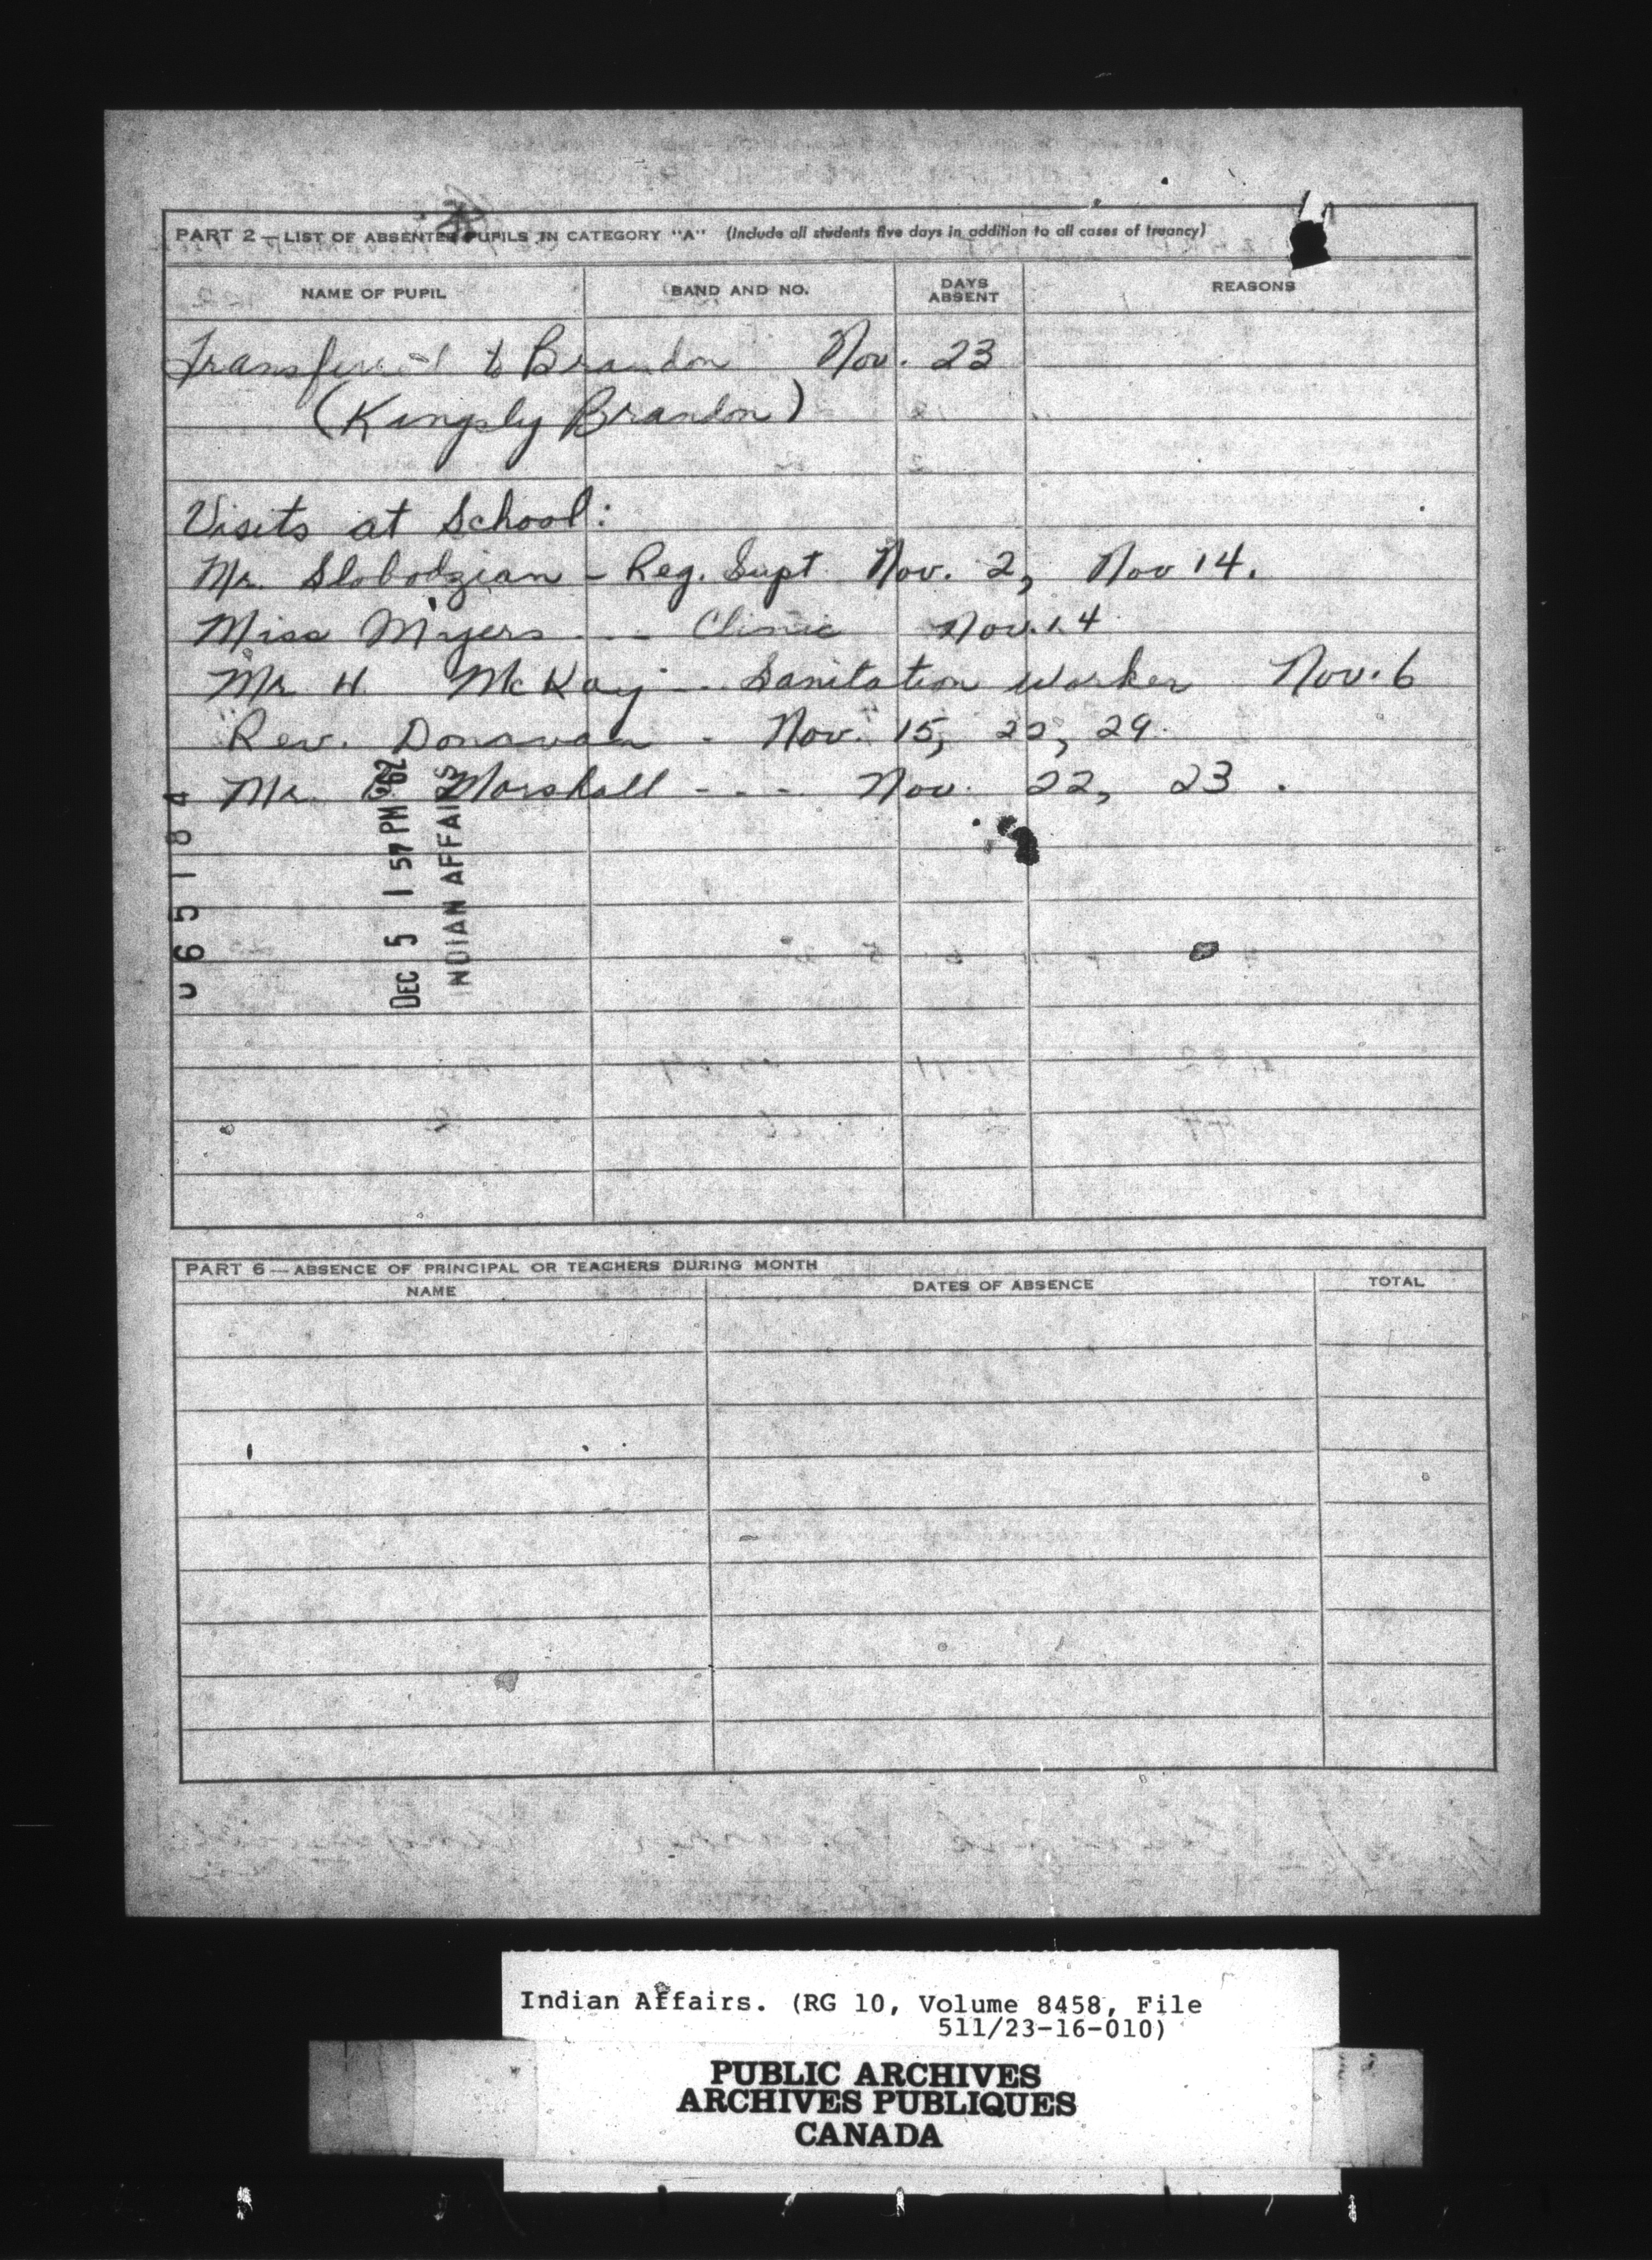 PART 2 — LIST OF ABSENTEE PUPILS IN CATEGORY "A" (Include all students five days in addition to all cases of truancy)
NAME OF PUPIL BAND AND NO. DAYS ABSENT REASONS
Transferred to Brandon Nov. 23
(Kingsly Brandon)
Visits at School:
Mr. Slobodzian - Reg. Supt. Nov. 2, Nov 14.
Miss Myers --- Clinic Nov. 14
Mr H. McKay -- Sanitation Worker Nov. 6
Rev. Donovan - Nov. 15, 22, 29.
Mr. Marshall - - - - Nov. 22, 23.
065184
DEC 5 1 57 PM '62
INDIAN AFFAIRS
PART 6 — ABSENCE OF PRINCIPAL OR TEACHERS DURING MONTH
NAME DATES OF ABSENCE TOTAL
Indian Affairs. (RG 10, Volume 8458, File
511/23-16-010)
PUBLIC ARCHIVES
ARCHIVES PUBLIQUES
CANADA